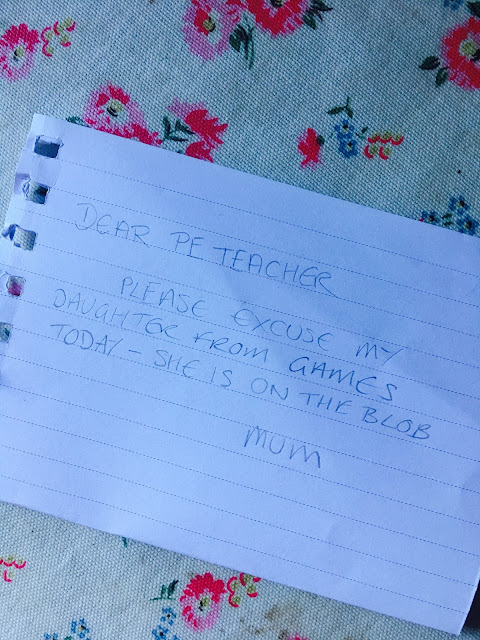 DEAR PE TEACHER
PLEASE EXCUSE MY
DAUGHTER FROM GAMES
TODAY - SHE IS ON THE BLOB
MUM